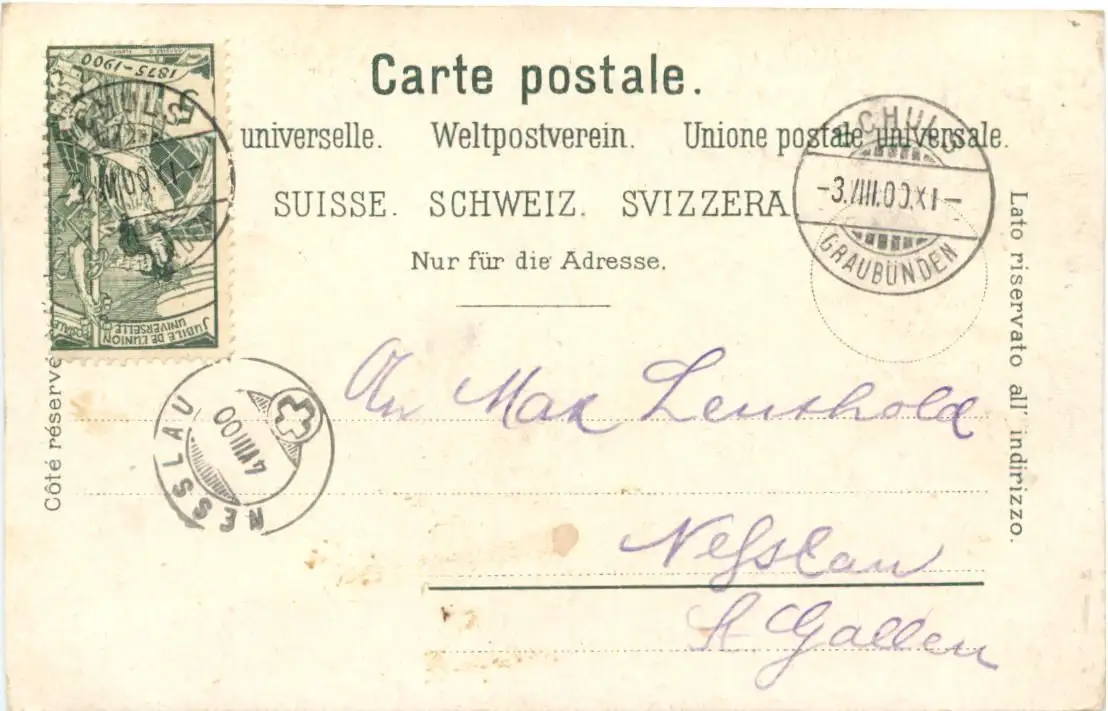 Carte postale.
universelle. Weltpostverein. Unione postale universale.
SUISSE. SCHWEIZ. SVIZZERA
Nur für die Adresse.
1875-1900
5
JUBILÉ DE L'UNION
POSTALE UNIVERSELLE
SCHULS
SCHULS
-3.VIII.00.XI-
GRAUBÜNDEN
NESSLAU
4 VIII 00
Côté réservé
Lato riservato all' indirizzo.
An Max Leuthold
Neßlau
St. Gallen